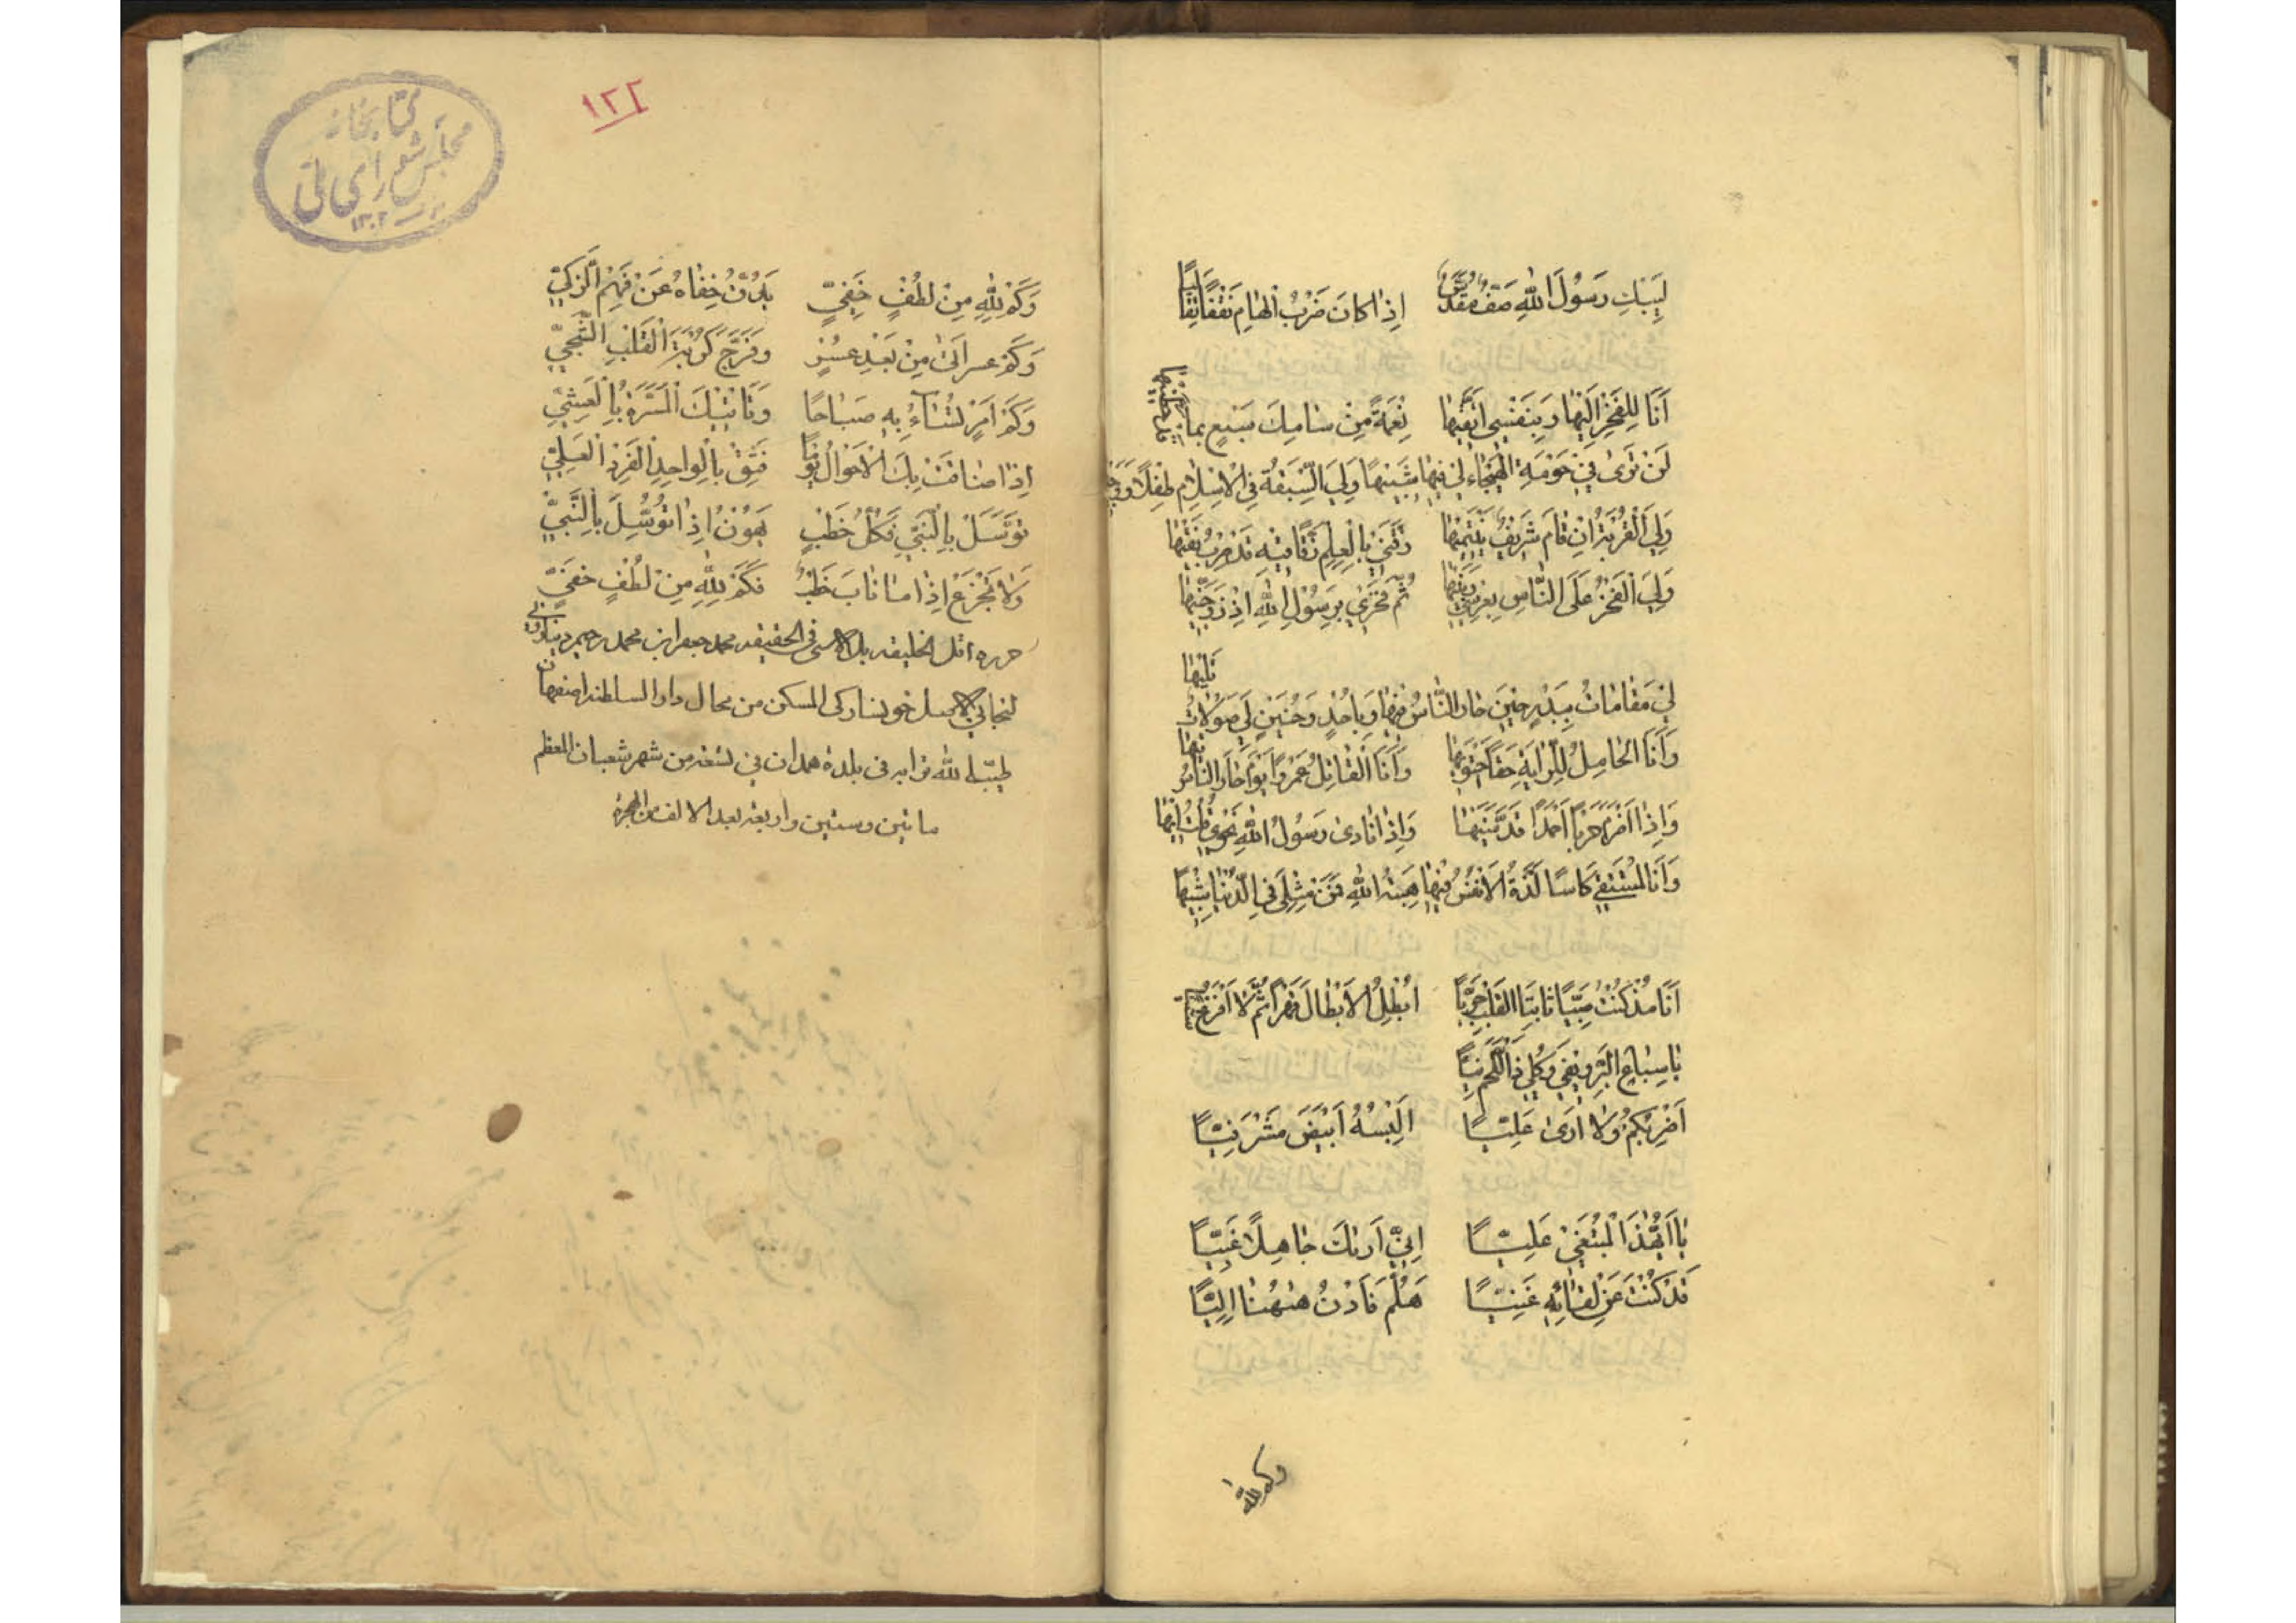 لِيَبْكِ رَسُولَ اللّٰهِ صَفٌّ مُقَدَّمٌ اِذَا كَانَ ضَرْبُ الْهَامِ نَفْقًا تَفَانِيًا
اَنَا لِلْفَخْرِ اِلَيْهَا وَبِنَفْسِى اَتَّقِيهَا نِعْمَةً مِنْ سَامِكَ سَبْعٍ بِمَا
لَنْ تَرٰى فِي حَوْمَةِ الْهَيْجَاءِ لِي فِيهَا شَبِيهًا وَلِيَ السَّبْقَةُ فِي الْاِسْلَامِ طِفْلًا وَ
وَلِيَ الْقُرْبَةُ اِنْ قَامَ شَرِيفٌ يَنْتَمِيهَا زَقَّنِي بِالْعِلْمِ زَقًّا فِيهِ قَدْ صِرْتُ فَقِيهَا
وَلِيَ الْفَخْرُ عَلَى النَّاسِ بِعِرْسِي وَبَنِيهَا ثُمَّ فَخْرِي بِرَسُولِ اللّٰهِ اِذْ زَوَّجَنِيهَا
لِي مَقَامَاتٌ بِبَدْرٍ حِينَ حَارَ النَّاسُ فِيهَا وَبِاُحُدٍ وَحُنَيْنٍ لِي صَوْلَاتٌ تَلِيهَا
وَاَنَا الْحَامِلُ لِلرَّايَةِ حَقًّا اَحْتَوِيهَا وَاَنَا الْقَاتِلُ عَمْرًوا يَوْمَ حَارَ النَّاسُ تِيهَا
وَاِذَا اَضْرَمَ حَرْبًا اَحْمَدٌ قَدَّمَنِيهَا وَاِذَا نَادٰى رَسُولُ اللّٰهِ نَحْوِي قُلْتُ اِيهَا
وَاَنَا الْمُسْقِي كَاْسًا لَذَّةُ الْاَنْفُسِ فِيهَا هِبَةُ اللّٰهِ فَمَنْ مِثْلِي فِي الدُّنْيَا شَبِيهًا
اَنَا مُذْ كُنْتُ صَبِيًّا ثَابِتَ الْقَلْبِ جَرِيًّا اُبْطِلُ الْاَبْطَالَ قَهْرًا ثُمَّ لَا اَفْزَعُ شَيْئًا
يَا سِبَاعَ الْبَرِّ رِيفِي وَكُلِي ذَا اللَّحْمَ نِيًّا
اَضْرِبُكُمْ وَلَا اَرٰى عَلِيًّا اُلْبِسُهُ اَبْيَضَ مَشْرَفِيًّا
يَا اَيُّهٰذَا الْمُبْتَغِي عَلِيًّا اِنِّي اَرٰىكَ جَاهِلًا غَبِيًّا
قَدْ كُنْتَ عَنْ لِقَائِهِ غَنِيًّا هَلُمَّ فَادْنُ هٰهُنَا اِلَيَّا
وكم لله
١٢٢
كتابخانه
مجلس شوراى ملى
١٣٠٢
وَكَمْ لِلّٰهِ مِنْ لُطْفٍ خَفِيٍّ يَدُقُّ خِفَاهُ عَنْ فَهْمِ الزَّكِيِّ
وَكَمْ يسر اَتٰى مِنْ بَعْدِ عُسْرٍ وَفَرَّجَ كُرْبَةَ الْقَلْبِ الشَّجِيِّ
وَكَمْ اَمْرٍ تُسَاءُ بِهِ صَبَاحًا وَتَاْتِيْكَ الْمَسَرَّةُ بِالْعَشِيِّ
اِذَا ضَاقَتْ بِكَ الْاَحْوَالُ يَوْمًا فَثِقْ بِالْوَاحِدِ الْفَرْدِ الْعَلِيِّ
تَوَسَّلْ بِالنَّبِيِّ فَكُلُّ خَطْبٍ يَهُوْنُ اِذَا تُوُسِّلَ بِالنَّبِيِّ
وَلَا تَجْزَعْ اِذَا مَا نَابَ خَطْبٌ فَكَمْ لِلّٰهِ مِنْ لُطْفٍ خَفِيٍّ
حرره اقل الخليقه بل لا شى فى الحقيقه محمد جعفر ابن محمد رحيم
لنجانى الاصل خونسارکى المسكن من محال دار السلطنه اصفهان
طيب الله ترابه فى بلدة همدان فى تسعه من شهر شعبان المعظم
ماتين وستين واربعه بعد الالف من الهجرة